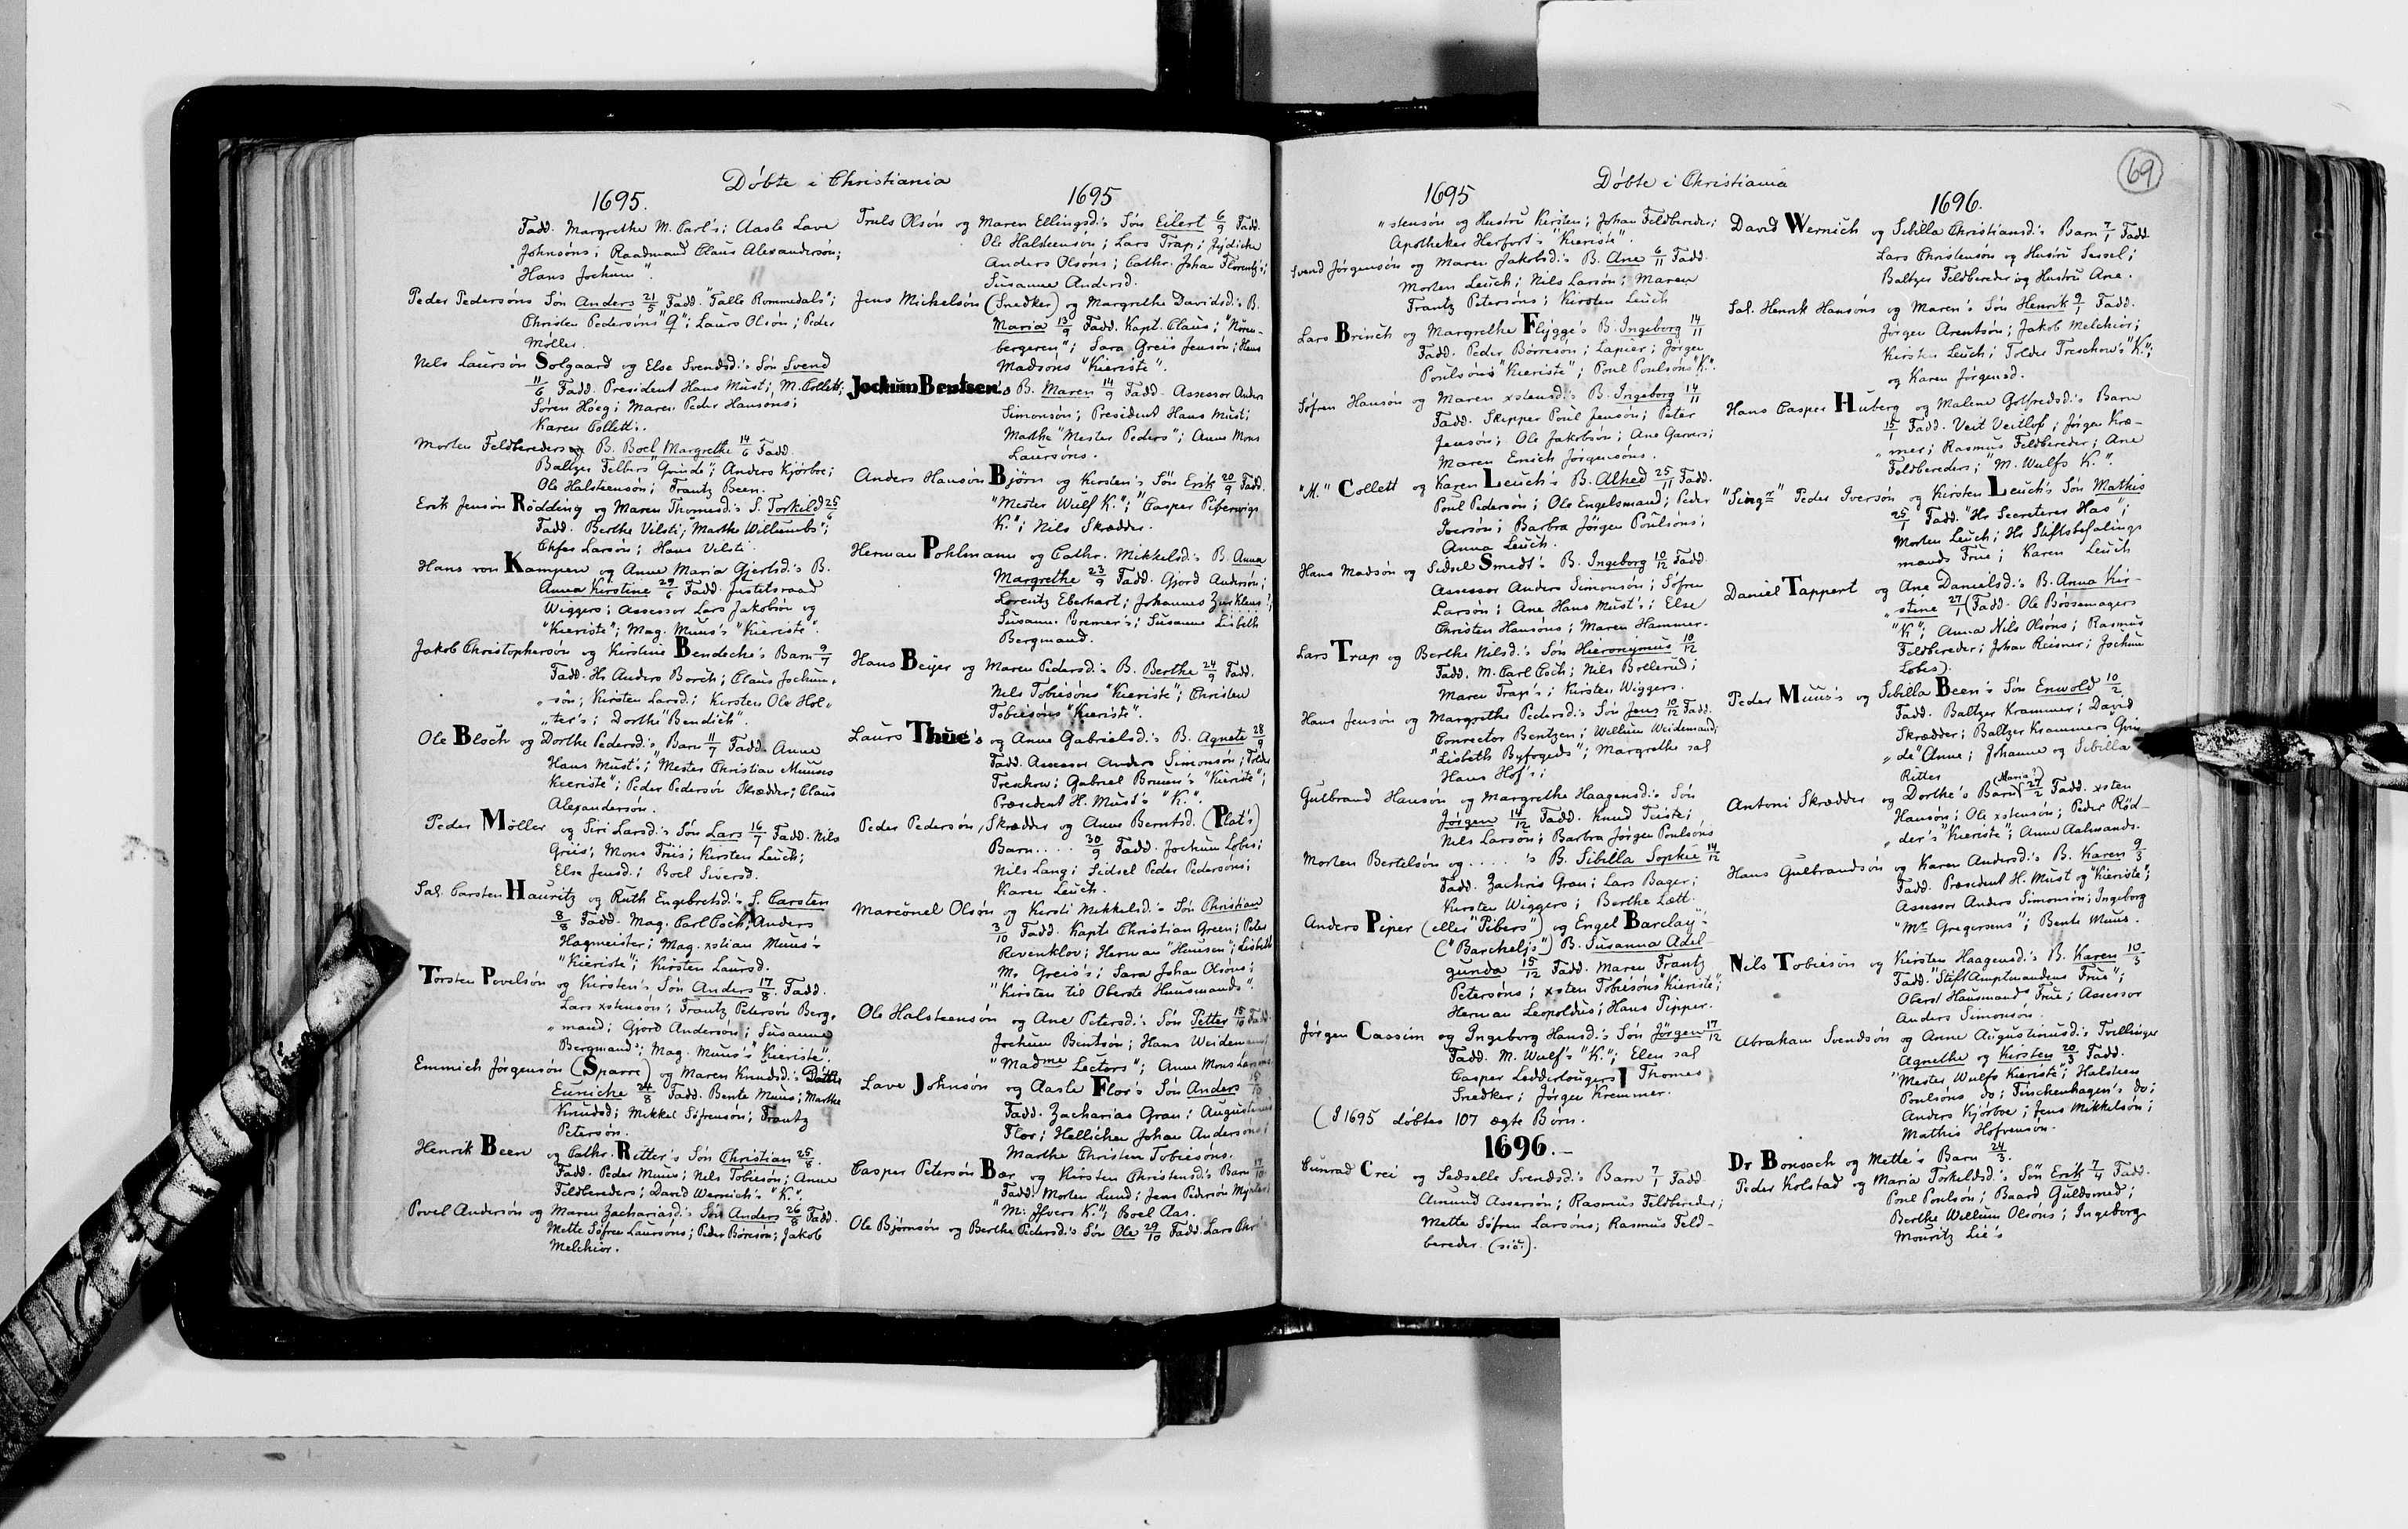 Döbte i Christiania
1695.
Fadd. Margrethe M. Carl's; Aasle Lave
Johnsöns; Raadmand Claus Alexandersön;
"Hans Jochum".
Peder Pedersöns Sön Anders 21/5 Fadd. "Talle Rommedals";
Christen Pedersöns "Q"; Laurs Olsön; Peder
Möller.
Nels Laursön Solgaard og Else Svendsd.'s Sön Svend
11/6 Fadd. President Hans Must; M. Collett;
Sören Höeg; Maren Peder Hansöns;
Karen Collett.
Morten Feldbereders B. Boel Margrethe 14/6 Fadd.
Baltzer Felbers "Qvinde"; Anders Kjörboe;
Ole Halsteensön; Frantz Been.
Erik Jensön Rödding og Maren Thomesd.'s S. Torkild 25/6
Fadd. Berthe Vilsti; Marthe Willumbs";
Larsön; Hans Vilsti.
Hans von Kampen og Anne Maria Gjertsd.'s B.
Anna Kirstine 29/6 Fadd. Justitsraad
Wiggers; Assessor Lars Jakobsön og
"Kieriste"; Mag. Muus's "Kieriste".
Jakob Christophersön og Kirstine Bendeche's Barn 9/7
Fadd. Hr Anders Borch; Claus Jochum,
"sön; Kirsten Larsd.; Kirsten Ole Hol„
„ter's; Dorthe "Bendich".
Ole Bloch og Dorthe Pedersd.'s Barn 11/7 Fadd. Anne
Hans Must's; "Mester Christian Muuses
Kieriste"; Peder Pedersön Skrædder; Claus
Alexandersön.
Peder Möller og Siri Larsd.'s Sön Lars 16/7 Fadd. Nils
Griis; Mons Friis; Kirsten Leuch;
Else Jensd.; Boel Siversd.
Sal. Carsten Hauritz og Ruth Engebretsd.'s S. Carsten
8/8 Fadd. Mag. Carl Coch; Anders
Hagmeister; Mag. xstian Muus's
"Kieriste"; Kirsten Laursd.
Torsten Povelsön og Kirsten's Sön Anders 17/8. Fadd.
Lars xstensön; Frantz Petersön Berg„
„mand; Gjord Andersön; Susanna
Bergmand; Mag. Muus's "Kieriste".
Emmich Jörgensön (Sparre) og Maren Knudsd.'s Dötter
Eunicke 24/8 Fadd. Bente Muus; Marthe
Knudsd; Mikkel Söfrensön; Frantz
Petersön.
Henrik Been og Cathr. Retter's Sön Christian 25/8.
Fadd. Peder Muus; Nils Tobiesön; Anne
Feldbereders; David Wernich's "K."
Povel Andersön og Maren Zachariasd.'s Sön Anders 26/8 Fadd.
Mette Söfren Laursöns; Peder Börresön; Jakob
Melchior.
1695
Truls Olsön og Maren Ellingsd.'s Sön Eilert 6/9 Fadd.
Ole Halsteensön; Lars Trap; Jydiche
Anders Olsöns; Cathr. Johan Florentz's;
Susanne Andersd.
Jens Mickelsön (Snedker) og Margrethe Davidsd.'s B.
Maria 13/9 Fadd. Kapt. Claus; "Nüren-
bergeren"; Sara Greis Jensön; Hans
Madsöns "Kieriste".
Jochum Bentsen's B. Maren 14/9 Fadd. Assessor Anders
Simonsön; President Hans Must;
Marthe "Mester Peders"; Anne Mons
Laursöns.
Anders Hansön Björn og Kirsten's Sön Erik 20/9 Fadd.
"Mester Wulf K."; "Casper Pibervigs
K."; Nils Skrædder.
Herman Pohlmann og Cathr. Mikkelsd.'s B. Anna
Margrethe 23/9 Fadd. Gjord Andersön;
Lorentz Eberhart; Johannes Zurkleus;
Susann. Bremer's; Susanne Lisbeth
Bergmand.
Hans Beijer og Maren Pedersd.'s B. Berthe 24/9 Fadd.
Nils Tobiesöns "Kieriste"; Christen
Tobiesöns "Kieriste".
Laurs Thue's og Anne Gabrielsd.'s B. Agnete 28/9
Fadd. Assessor Anders Simonsön; Tolder
Treschow; Gabriel Bruun's "Kieriste";
Præsident H. Must's "K.".
Peder Pedersön Skrædder og Anne Berntsd. (Plat's)
Barn .... 30/9 Fadd. Jochum Lobes;
Nils Lang; Sidsel Peder Pedersöns;
Karen Leuch.
Marconel Olsön og Kersti Mikkelsd.'s Sön Christian
3/10 Fadd. Kapt. Christian Green; Peter
Revenklov; Herman "Heusen"; Lisbeth
Mr Greis's; Sara Johan Olsöns;
"Kirsten til Oberste Huusmands".
Ole Halsteensön og Ane Petersd.'s Sön Petter 15/10 Fadd.
Jochum Bentsön; Hans Weideman;
"Madme Lectors"; Anne Mons Larsöns
Lave Johnsön og Aasle Flor's Sön Anders 15/10
Fadd. Zacharias Gran; Augustinus
Flor; Hellichen Johan Andersöns;
Marthe Christen Tobiesöns.
Casper Petersön Bær og Kirsten Christensd.'s Barn 17/10
Fadd. Morten Lund; Jens Pedersön
"M: Ifvers K."; Boel Aas.
Ole Björnsön og Berthe Pedersd.'s Sön Ole 29/10 Fadd. Lars Chr
Döbte i Christiania
69
1695
„stensön og Hustru Kirsten; Johan Feldbereder;
Apotheker Herfort's "Kieriste".
Svend Jörgensön og Maren Jakobsd.'s B. Ane 6/11 Fadd.
Morten Leuch; Nils Larsön; Maren
Frantz Petersöns; Kirsten Leuch
Lars Brinch og Margrethe Flygge's B. Ingeborg 14/11
Fadd. Peder Börresön; Lapier; Jörgen
Poulsöns "Kieriste"; Poul Poulsöns "K.".
Söfren Hansön og Maren xstensd.'s B. Ingeborg 14/11
Fadd. Skipper Poul Jensön; Peter
Jensön; Ole Jakobsön; Ane Garvers;
Maren Emich Jörgensöns.
"M." Collett og Karen Leuch's B. Alhed 25/11 Fadd.
Poul Pedersön; Ole Engelsmand; Peder
Iversön; Barbra Jörgen Poulsöns;
Anna Leuch.
Hans Madsön og Sidsel Smedt's B. Ingeborg 10/12 Fadd.
Assessor Anders Simonsön; Söfren
Larsön; Ane Hans Must's; Else
Christen Hansöns; Maren Hammer.
Lars Trap og Berthe Nilsd.'s Sön Hieronymus 10/12
Fadd. M. Carl Coch; Nils Bollerud;
Maren Trap's; Kirsten Wiggers.
Hans Jensön og Margrethe Pedersd.'s Sön Jens 10/12 Fadd.
Conrector Bentzen; Wellum Weidemand;
"Lisbeth Byfogeds"; Margrethe sal
Hans Hof's;
Gulbrand Hansön og Margrethe Haagensd.'s Sön
Jörgen 14/12 Fadd. Knud Teiste;
Nils Larsön; Barbra Jörgen Poulsöns
Morten Bertelsön og .... 's B. Sibilla Sophie 14/12
Fadd. Zachris Gran; Lars Bager;
Kirsten Wiggers; Berthe Lætt.
Anders Piper (eller "Pibers") og Engel Barclay
("Barchelj's") B. Susanna Adel-
gunda 15/12 Fadd. Maren Frantz
Petersöns; xsten Tobiesöns "Kieriste";
Herman Leopoldus; Hans Pipper.
Jörgen Cassim og Ingeborg Hansd.'s Sön Jörgen 17/12
Fadd. M. Wulf's "K."; Elen sal
Casper Ledderlougers; Thomes
Snedker; Jörgen Kremmer.
(I 1695 döbtes 107 ægte Börn.
1696.—
Cunrad Crei og Sedselle Svendsd.'s Barn 7/1 Fadd.
Amund Assersön; Rasmus Feldbereder;
Mette Söfren Larsöns; Rasmus Feld-
bereder (sic!).
1696.
David Wernich og Sibilla Christiansd.'s Barn 7/1 Fadd.
Lars Christensön og Hustru Sessel;
Baltzer Feldbereder og Hustru Ane.
Sal. Henrik Hansöns og Maren's Sön Henrik 9/1 Fadd.
Jörgen Arentsön; Jakob Melchior;
Kirsten Leuch; Tolder Treschow's "K.";
og Karen Jörgensd.
Hans Casper Huberg og Malene Gotfredsd.'s Barn
15/1 Fadd. Veit Veitlof; Jörgen Kræ-
„mer; Rasmus Feldbereder; Ane
Feldbereders; "M. Wulfs K.".
"Sieg.r" Peder Iversön og Kirsten Leuch's Sön Mathis
25/1 Fadd. "Hr Secreterer Has";
Morten Leuch; Hr Stiftsbefalings
mands Frue; Karen Leuch
Daniel Tappert og Ane Danielsd.'s B. Anna Kir-
„stine 27/1 (Fadd. Ole Bössemagers
"K"; Anna Nils Olsöns; Rasmus
Feldbereder; Johan Reisner; Jochum
Lobes).
Peder Muus's og Sibilla Been's Sön Enwold 10/2
Fadd. Baltzer Krammer; David
Skrædder; Baltzer Krammers "Qvin
„de" Anne; Johanne og Sibilla
Ritter
Antoni Skrædder og Dorthe's Barn (Maria?) 27/2 Fadd. xsten
Hansön; Ole xstensön; Peder Röd-
„der's "Kieriste"; Anne Aalmands.
Hans Gulbrandsön og Karen Andersd.'s B. Karen 9/3
Fadd. Præsident H. Must og "Kieriste";
Assessor Anders Simonsön; Ingeborg
"Mr Gregersens"; Bente Muus.
Nils Tobiesön og Kirsten Haagensd.'s B. Karen 10/3
Fadd. "Stiftamptmandens Frue";
Oberst Hausmands Frue; Assessor
Anders Simonsön.
Abraham Svendsön og Anne Augustinusd.'s Tvillinger
Agnethe og Kirsten 20/3 Fadd.
"Mester Wulfs Kieriste"; Halsteen
Poulsöns do; Finckenhagen's do;
Anders Kjörboe; Jens Mikkelsön;
Mathis Hofvensön.
Dr Bonsach og Mette's Barn 24/3.
Peder Kolstad og Maria Torkeldsd.'s Sön Erik 7/4 Fadd.
Poul Poulsön; Baard Guldsmed;
Berthe Wellum Olsöns; Ingeborg
Mouritz Lie's